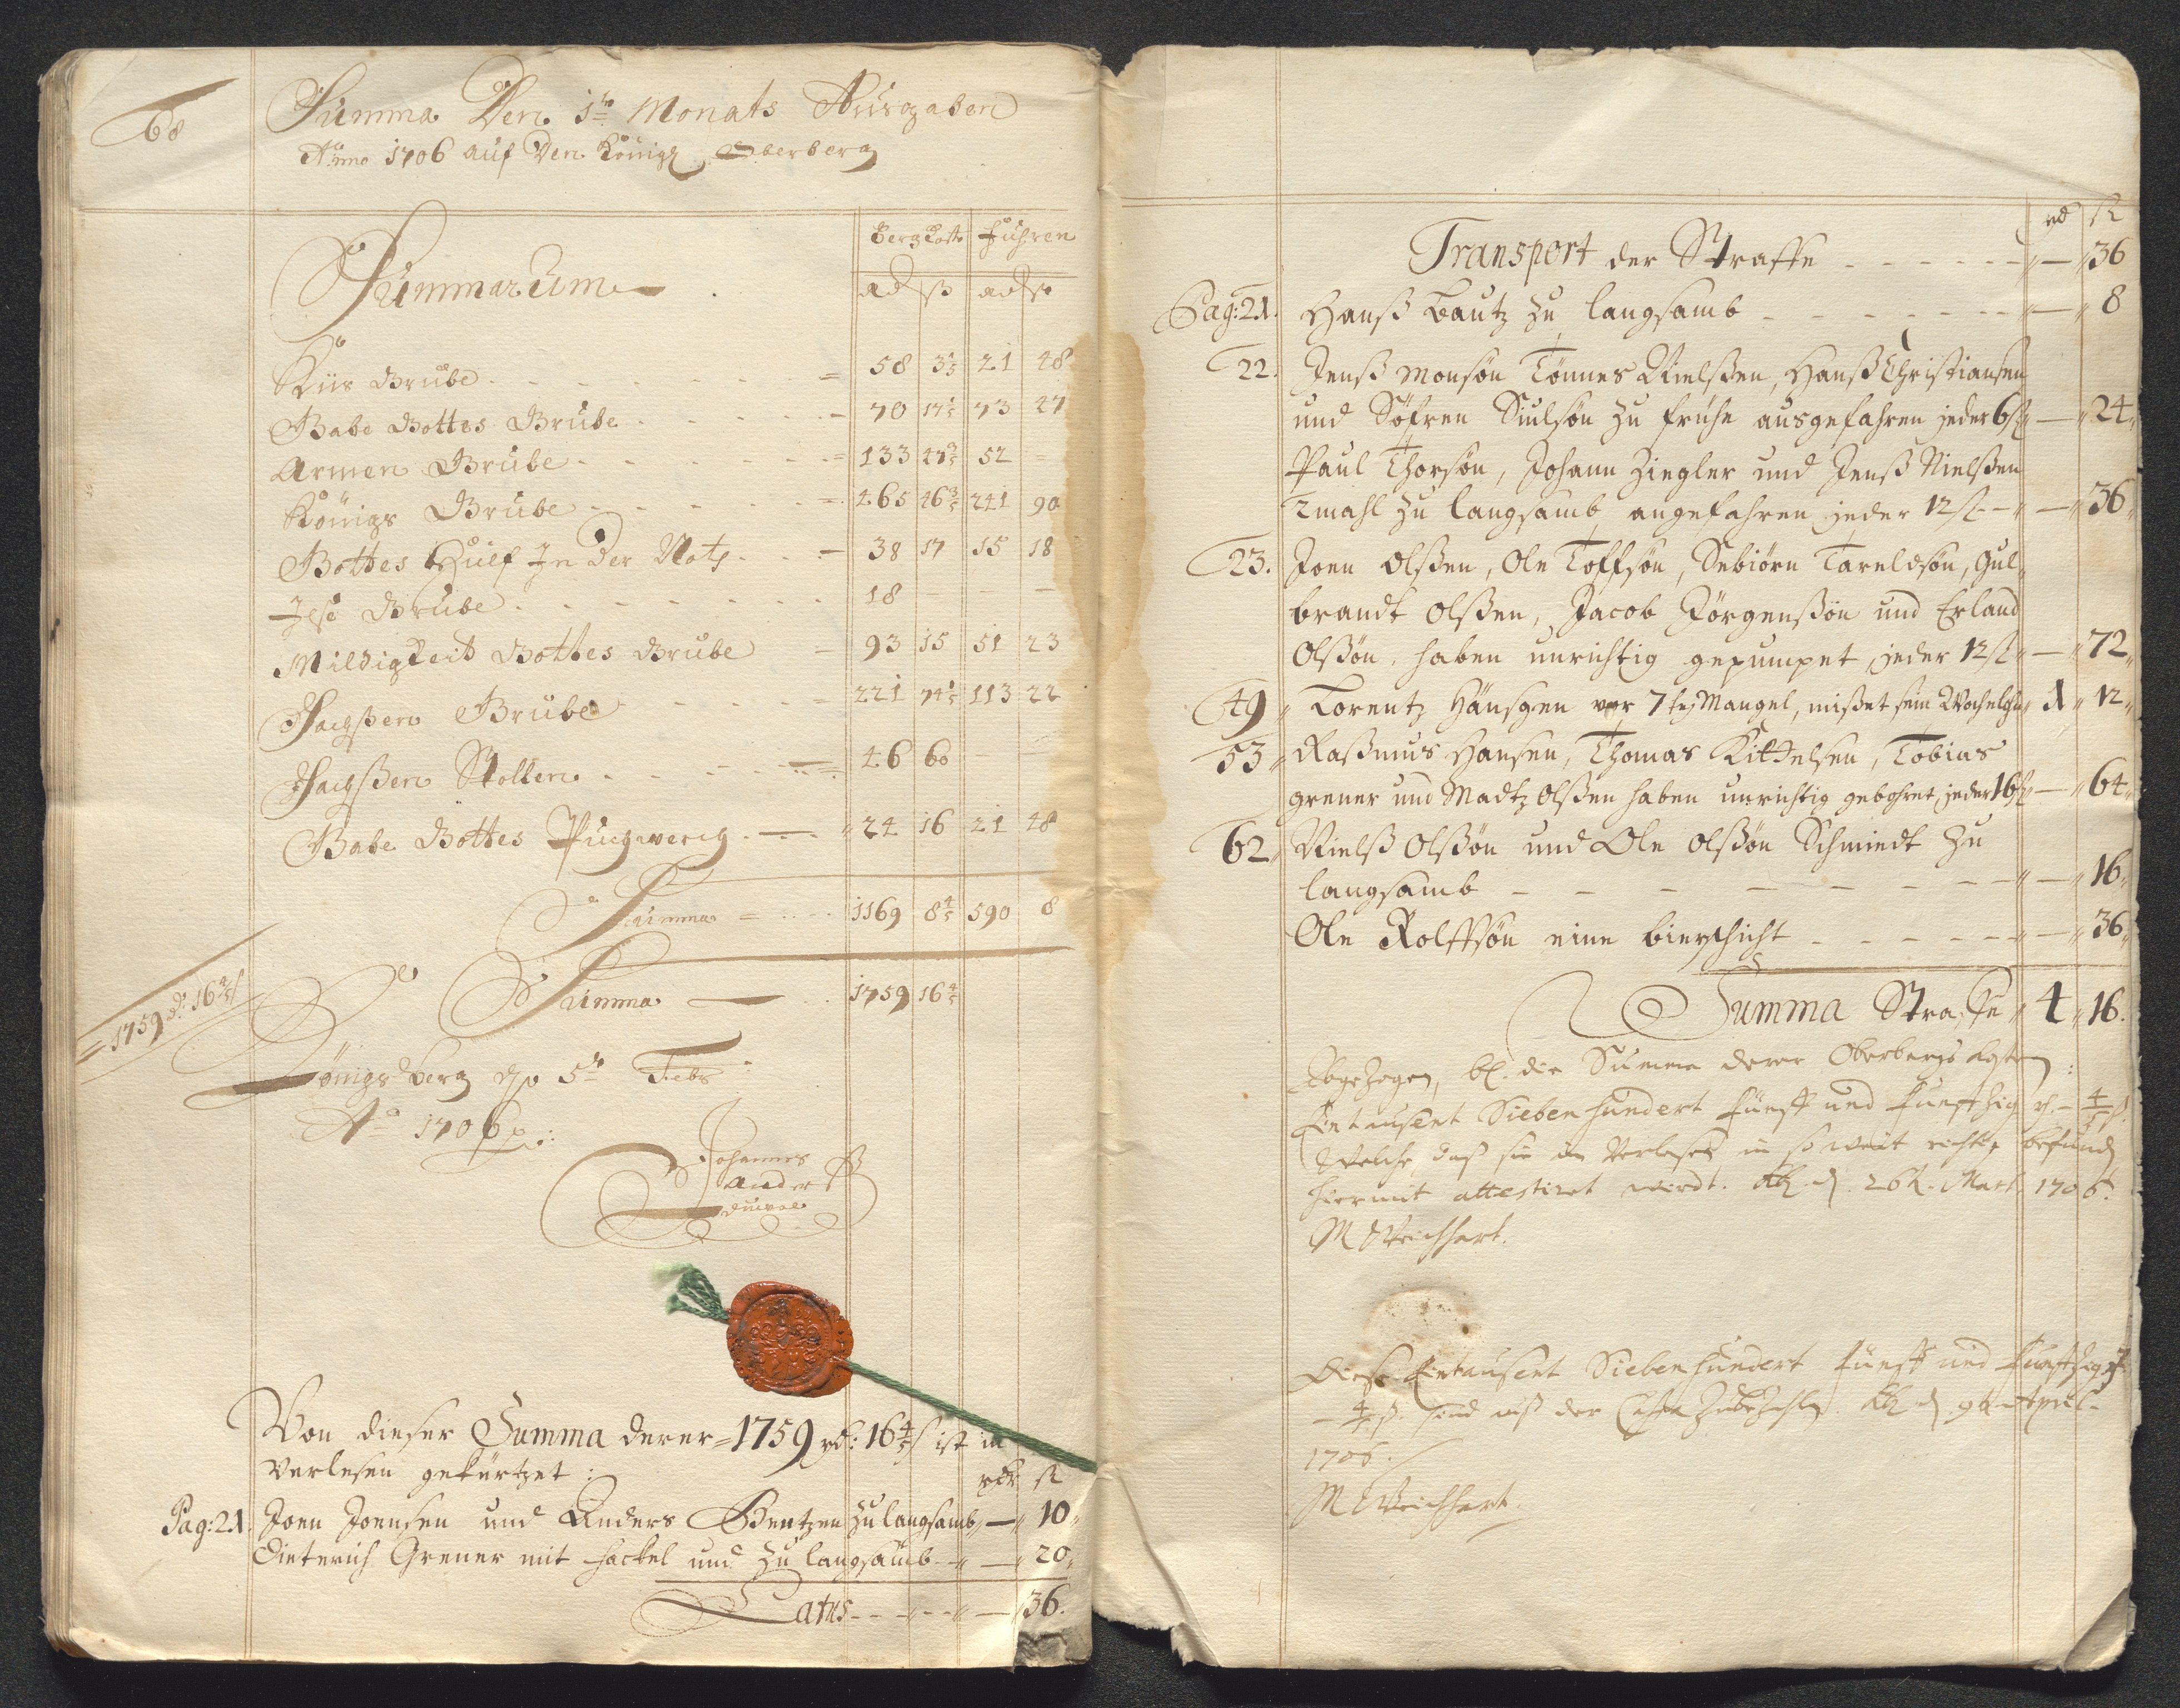 68
Summa Den 1te Monats Ausgaben
Anno 1706 auf Den Königs Oberberg
BergKost Fuhren
Summarium
rd ß rd ß
Küs Grube 58 3 1/5 21 48
Gabe Gottes Grube 70 17 1/5 73 27
Armen Grube 133 27 3/5 52
Königs Grube 465 46 3/5 241 90
Gottes Hülf In Der Noth 38 17 15 18
Grube 18
Mildigkeit Gottes Grube 93 15 51 23
Sachßen Grube 221 74 1/5 113 22
Sachßen Stollen 46 60
Gabe Gottes Puchwerch 24 16 21 48
Summa 1169 8 4/5 590 8
Summa 1759 16 4/5
1759 d: 16 4/5 ß
Königsberg 5te Febr
Ao 1706
Johannes
Ander
Von dieser Summa derer 1759 rd: 16 4/5 ß ist in
Verlesen gekürtzet:
rdr ß
Pag: 21. Joen Joensen und Anders Bentzen zu langsamb — 10
Dieterich Grener mit hackel und zu langsamb — 20
Latus — 36.
rd ß
Transport der Straffe — 36
Pag: 21. Hanß Bautz zu langsamb — 8
22. Jenß Monsön Tönnes Nielßen, Hanß Christiansen
und Söfren Siulsön zu frühe ausgefahren jeder 6 ß — 24
Paul Thorsön, Johann Ziegler und Jenß Nielßen
2mahl zu langsamb angefahren jeder 12 ß — 36
23. Joen Olßen, Ole Toffsön, Sebiörn Tareldsön, Gul-
brandt Olßen, Jacob Jörgenßön und Erland
Olßön, haben unrichtig gepumpet jeder 12 ß — 72
49 Lorentz Hänsgen vor 7 Mangel, mißet sein Wochelohn 1 12
53 Raßmus Hansen, Thomas Kittelsen, Tobias
Grener und Madtz Olßen haben unrichtig gebohret jeder 16 ß — 64
62 Nielß Olßön und Ole Olßön Schmiedt zu
langsamb — 16
Ole Rolffsön eine bierschicht — 36
Summa Straffe 4 16.
Abgezogen, bl. die Summa derer Oberbergs Kosten:
Eintausent Siebenhundert fünff und funfftzig rd. — 4/5 ß.
Welche, daß sie im Verlesen in so weit richtig befunden
hiermit attestiret wirdt. Kb. d. 26t. Mart. 1706.
M Weichhart.
Diese Eintausent Siebenhundert fünff und funfftzig rd
— 4/5 ß. sind auß der Cassa zu bezahlen. Kb d. 9t April
1706.
M Weichhart.